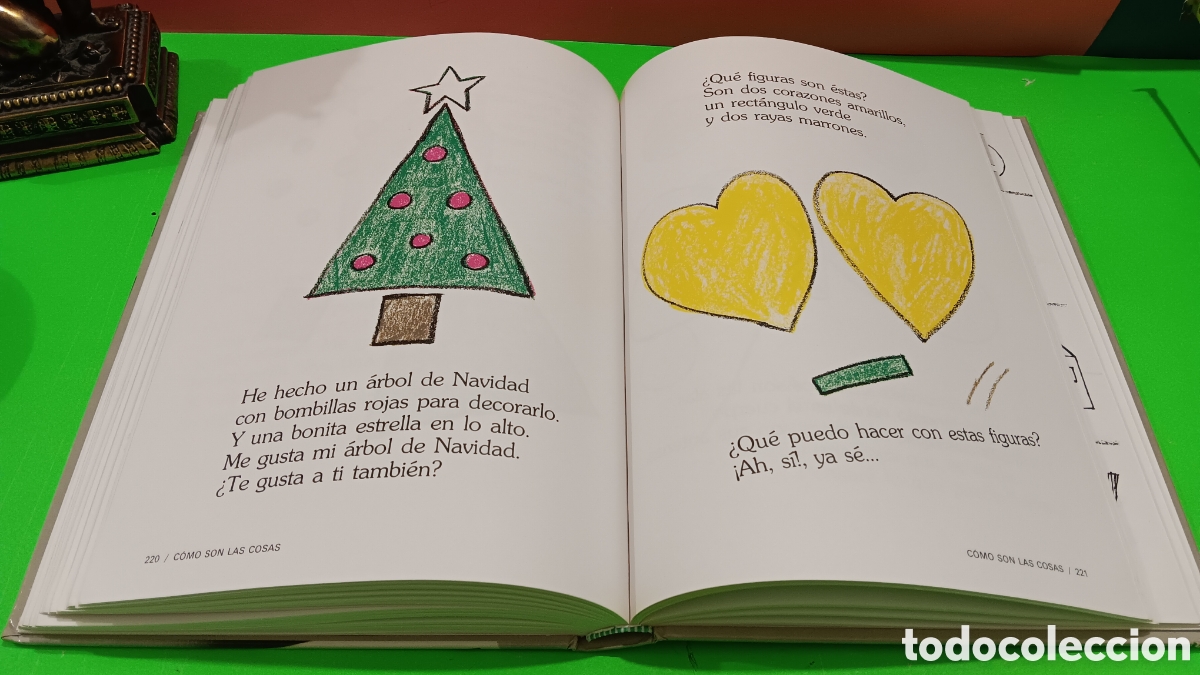 He hecho un árbol de Navidad
con bombillas rojas para decorarlo.
Y una bonita estrella en lo alto.
Me gusta mi árbol de Navidad.
¿Te gusta a ti también?
220 / CÓMO SON LAS COSAS
¿Qué figuras son éstas?
Son dos corazones amarillos,
un rectángulo verde
y dos rayas marrones.
¿Qué puedo hacer con estas figuras?
¡Ah, sí!, ya sé...
CÓMO SON LAS COSAS / 221
todocoleccion